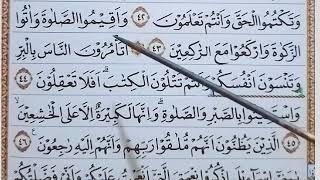 وَتَكْتُمُوا الْحَقَّ وَاَنْتُمْ تَعْلَمُوْنَ ٤٢ وَاَقِيْمُوا الصَّلٰوةَ وَاٰتُوا
الزَّكٰوةَ وَارْكَعُوْا مَعَ الرّٰكِعِيْنَ ٤٣ اَتَأْمُرُوْنَ النَّاسَ بِالْبِرِّ
وَتَنْسَوْنَ اَنْفُسَكُمْ وَاَنْتُمْ تَتْلُوْنَ الْكِتٰبَ ۗ اَفَلَا تَعْقِلُوْنَ ٤٤
وَاسْتَعِيْنُوْا بِالصَّبْرِ وَالصَّلٰوةِ ۗ وَاِنَّهَا لَكَبِيْرَةٌ اِلَّا عَلَى الْخٰشِعِيْنَ ۙ ٤٥
الَّذِيْنَ يَظُنُّوْنَ اَنَّهُمْ مُّلٰقُوْا رَبِّهِمْ وَاَنَّهُمْ اِلَيْهِ رٰجِعُوْنَ ٤٦